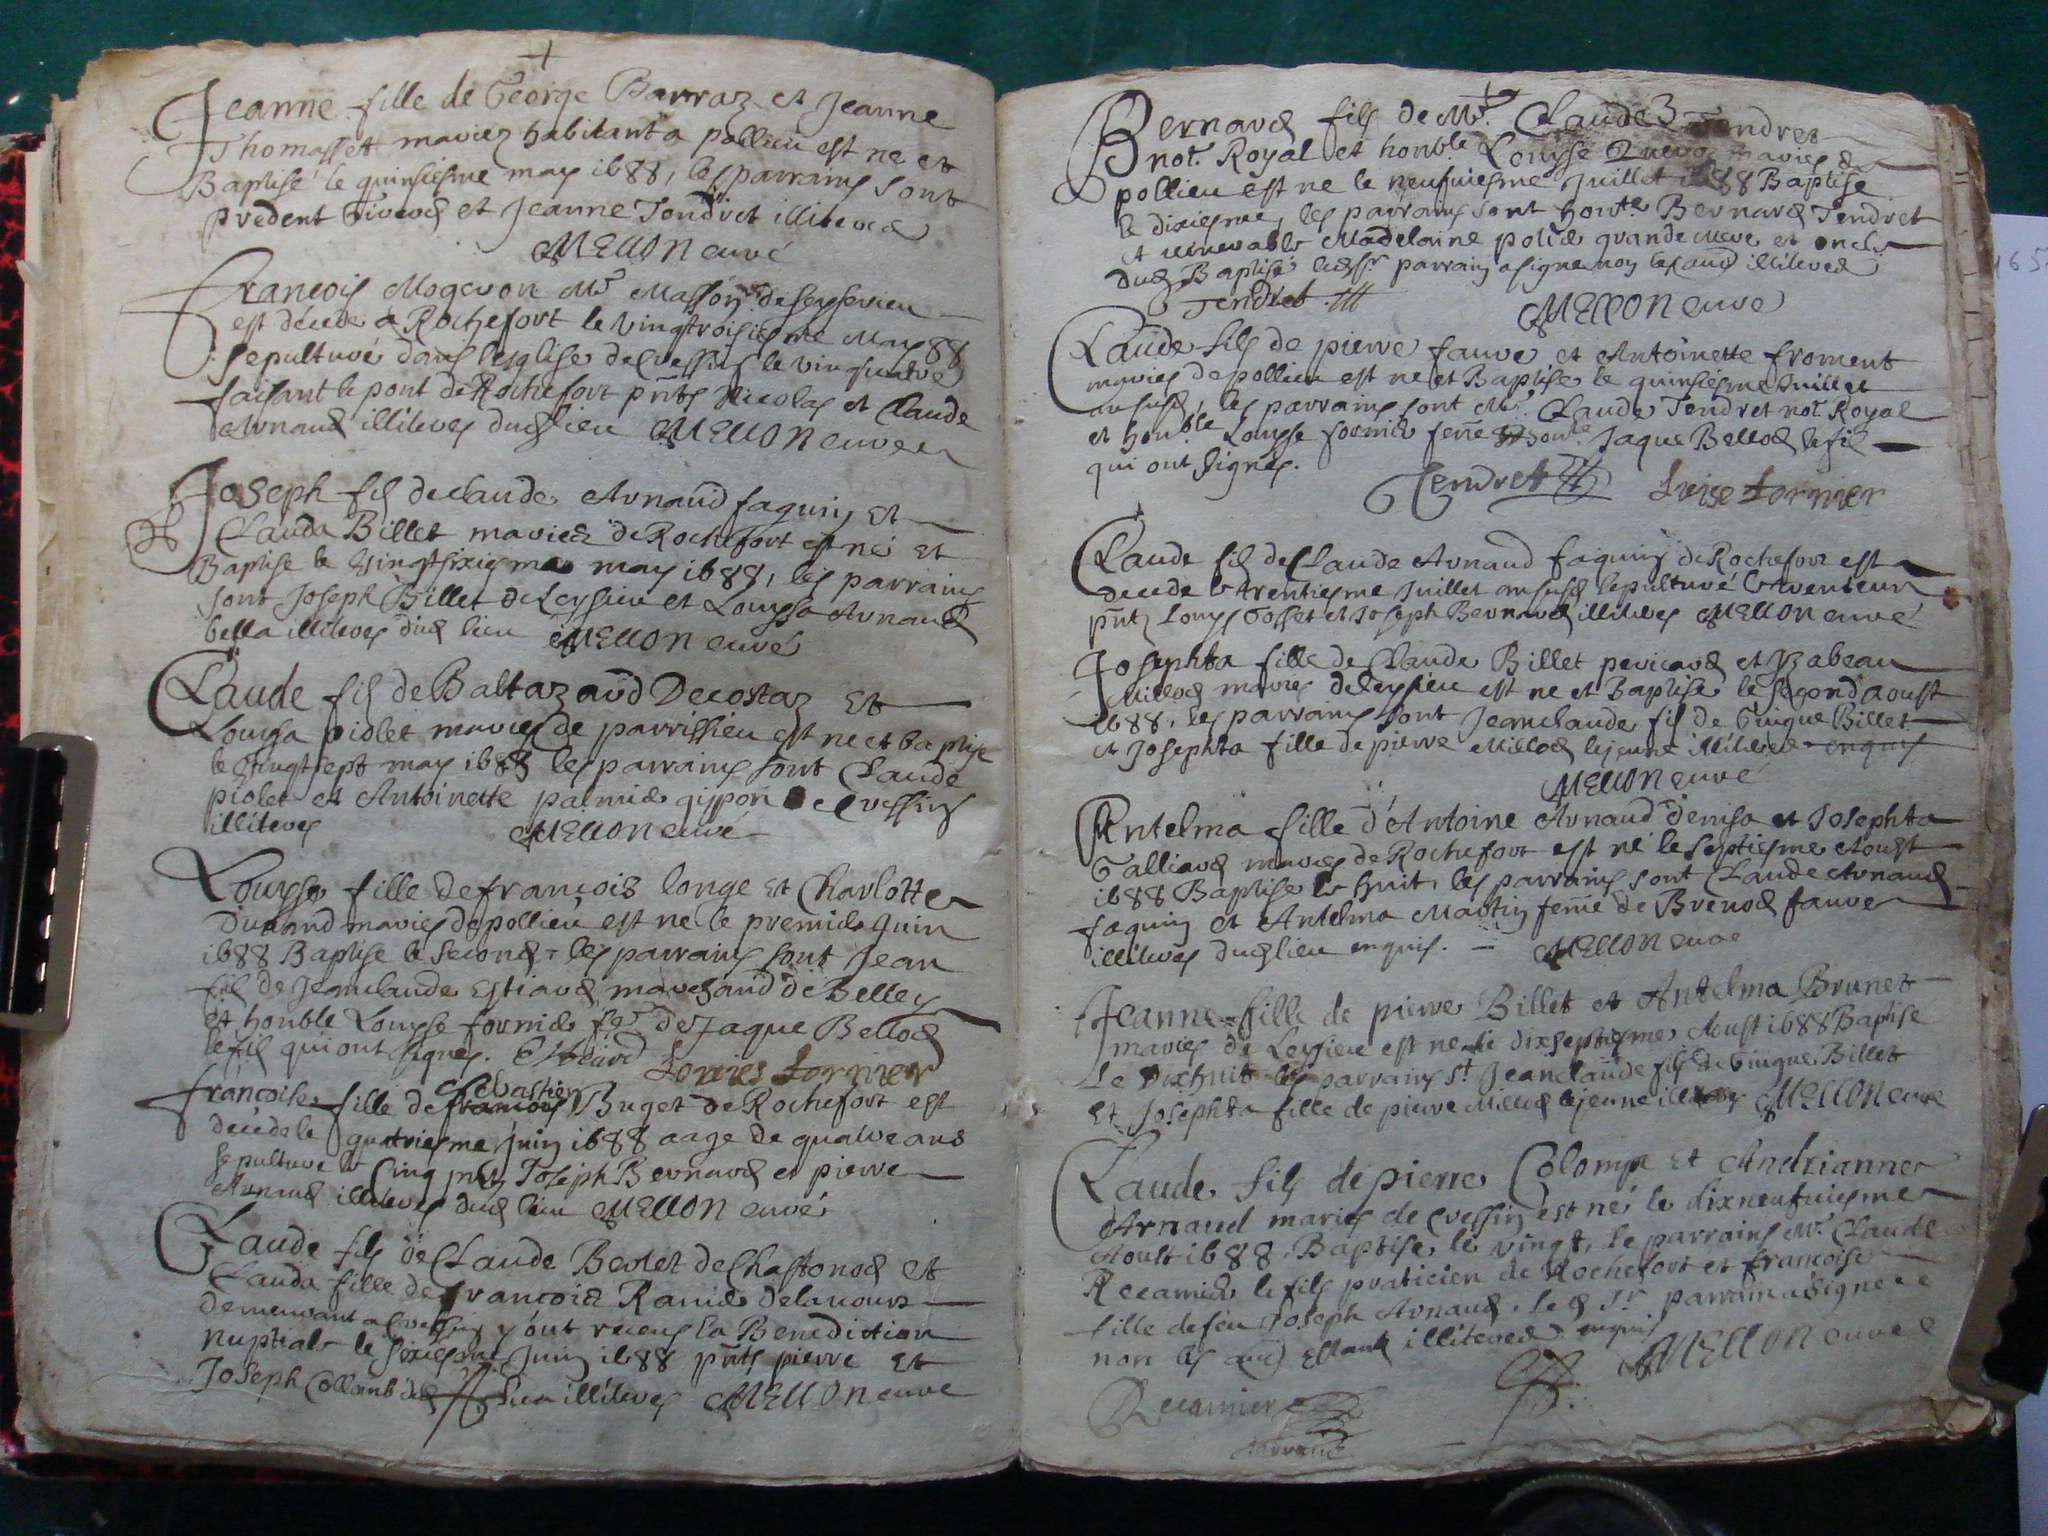 Jeanne fille de George Barraz et Jeanne
Thomasset mariez habitant a pollieu est ne et
Baptisé le quinsiesme may 1688, les parrains sont
prudent et Jeanne Tendret illiterez
MELLON curé
François Mogeron Mr Masson de Seysserieu
est décédé a Rochefort le vingtroisiesme May 88
sepulturé dans l'esglise de Cressin le vinquatre
faisant le pont de Rochefort pnts Nicolas et Claude
Arnaud illiteres dud lieu MELLON curé
Joseph fils de Claude Arnaud faquin et
Clauda Billet mariez de Rochefort est né et
Baptise le vingtsixiesme may 1688, les parrains
sont Joseph Billet de Leysieu et Louysa Arnaud
bella illiteres dud lieu MELLON curé
Claude fils de Baltazard Decostaz et
Louysa piolet maries de parrissieu est ne et baptise
le vingtsept may 1688 les parrains sont Claude
piolet et Antoinette palmier de Cressin
illiteres MELLON curé
Louyse fille de françois longe et Charlotte
Durand maries de pollieu est ne le premier Juin
1688 Baptise le second, les parrains sont Jean
fils de Jeanclaude Estiard, marchand de Belley
et honble Louyse fornier fe de Jaque Bellod
le fils qui ont signés. Louise Fornier
françoise fille de françois Sebastien Buget de Rochefort est
décédé le quatriesme Juin 1688 aage de quatre ans
sepulturé le cinq pnts Joseph Bernard et pierre
Arnaud illiteres dud lieu MELLON curé
Claude fils de Claude Berlet de Chastonod et
Clauda fille de françois Ravier delacours
demeurant a Cressin y ont receu la Benediction
nuptiale le sixiesme Juin 1688 pnts pierre et
Joseph Collomb dud lieu illiteres MELLON curé
Bernard fils de Mr Claude Tendret
not. Royal et honble Louyse maries de
pollieu est ne le neufuiesme Juillet 1688 Baptise
le dixiesme, les parrains sont honble Bernard Tendret
et Madelaine grande mere et oncle
dud Baptisé led sr parrain a signe non les autres illiteres
Tendret MELLON curé
Claude fils de pierre faure et Antoinette froment
maries de pollieu est ne et Baptise le quinsiesme Juillet
an susd, les parrains sont Mr Claude Tendret not. Royal
et honble Louyse fornier feme Jaque Bellod le fils
qui ont signés.
Tendret Luise Fornier
Claude fils de Claude Arnaud faquin de Rochefort est
decede le trentiesme Juillet an susd sepulturé le trenteun
pnts Louys Gosset et Joseph Bernard illiteres MELLON curé
Josephta fille de Claude Billet pericard et Yzabeau
Millod maries de Leysieu est ne et Baptise le second aoust
1688, les parrains sont Jeanclaude fils de Guigue Billet
et Josephta fille de pierre Millod le jeune illiteres enquis
MELLON curé
Antelma fille d'Antoine Arnaud denisa et Josephta
Galliard maries de Rochefort est né le septiesme Aoust
1688 Baptise le huit, les parrains sont Claude Arnaud
faquin et Antelma Martin feme de Brenod faure
illiteres dud lieu enquis. MELLON curé
Jeanne fille de pierre Billet et Antelma Brunet
maries de Leysieu est ne le dixseptiesme Aoust 1688 Baptisé
Le Dixhuit les parrains st Jeanclaude fils de Guigue Billet
Et Josephta fille de pierre Millod le jeune MELLON curé
Claude fils de pierre Colomp et Andrianne
Arnaud maries de Cressin est né le dixneufuiesme
Aoust 1688 Baptise le vingt, le parrains Mr Claude
Recamier le fils praticien de Rochefort et françoise
fille de feu Joseph Arnaud, led Sr parrain a signe
non les autres illiteres enquis
MELLON curé
Recamier
parrain